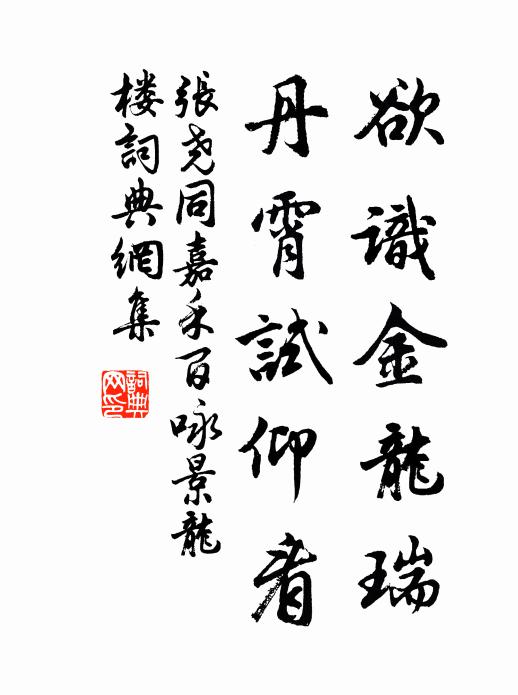 欲識金龍瑞
丹霄試仰看
張堯同嘉禾百咏景龍
楼詞典網集
詞典网印